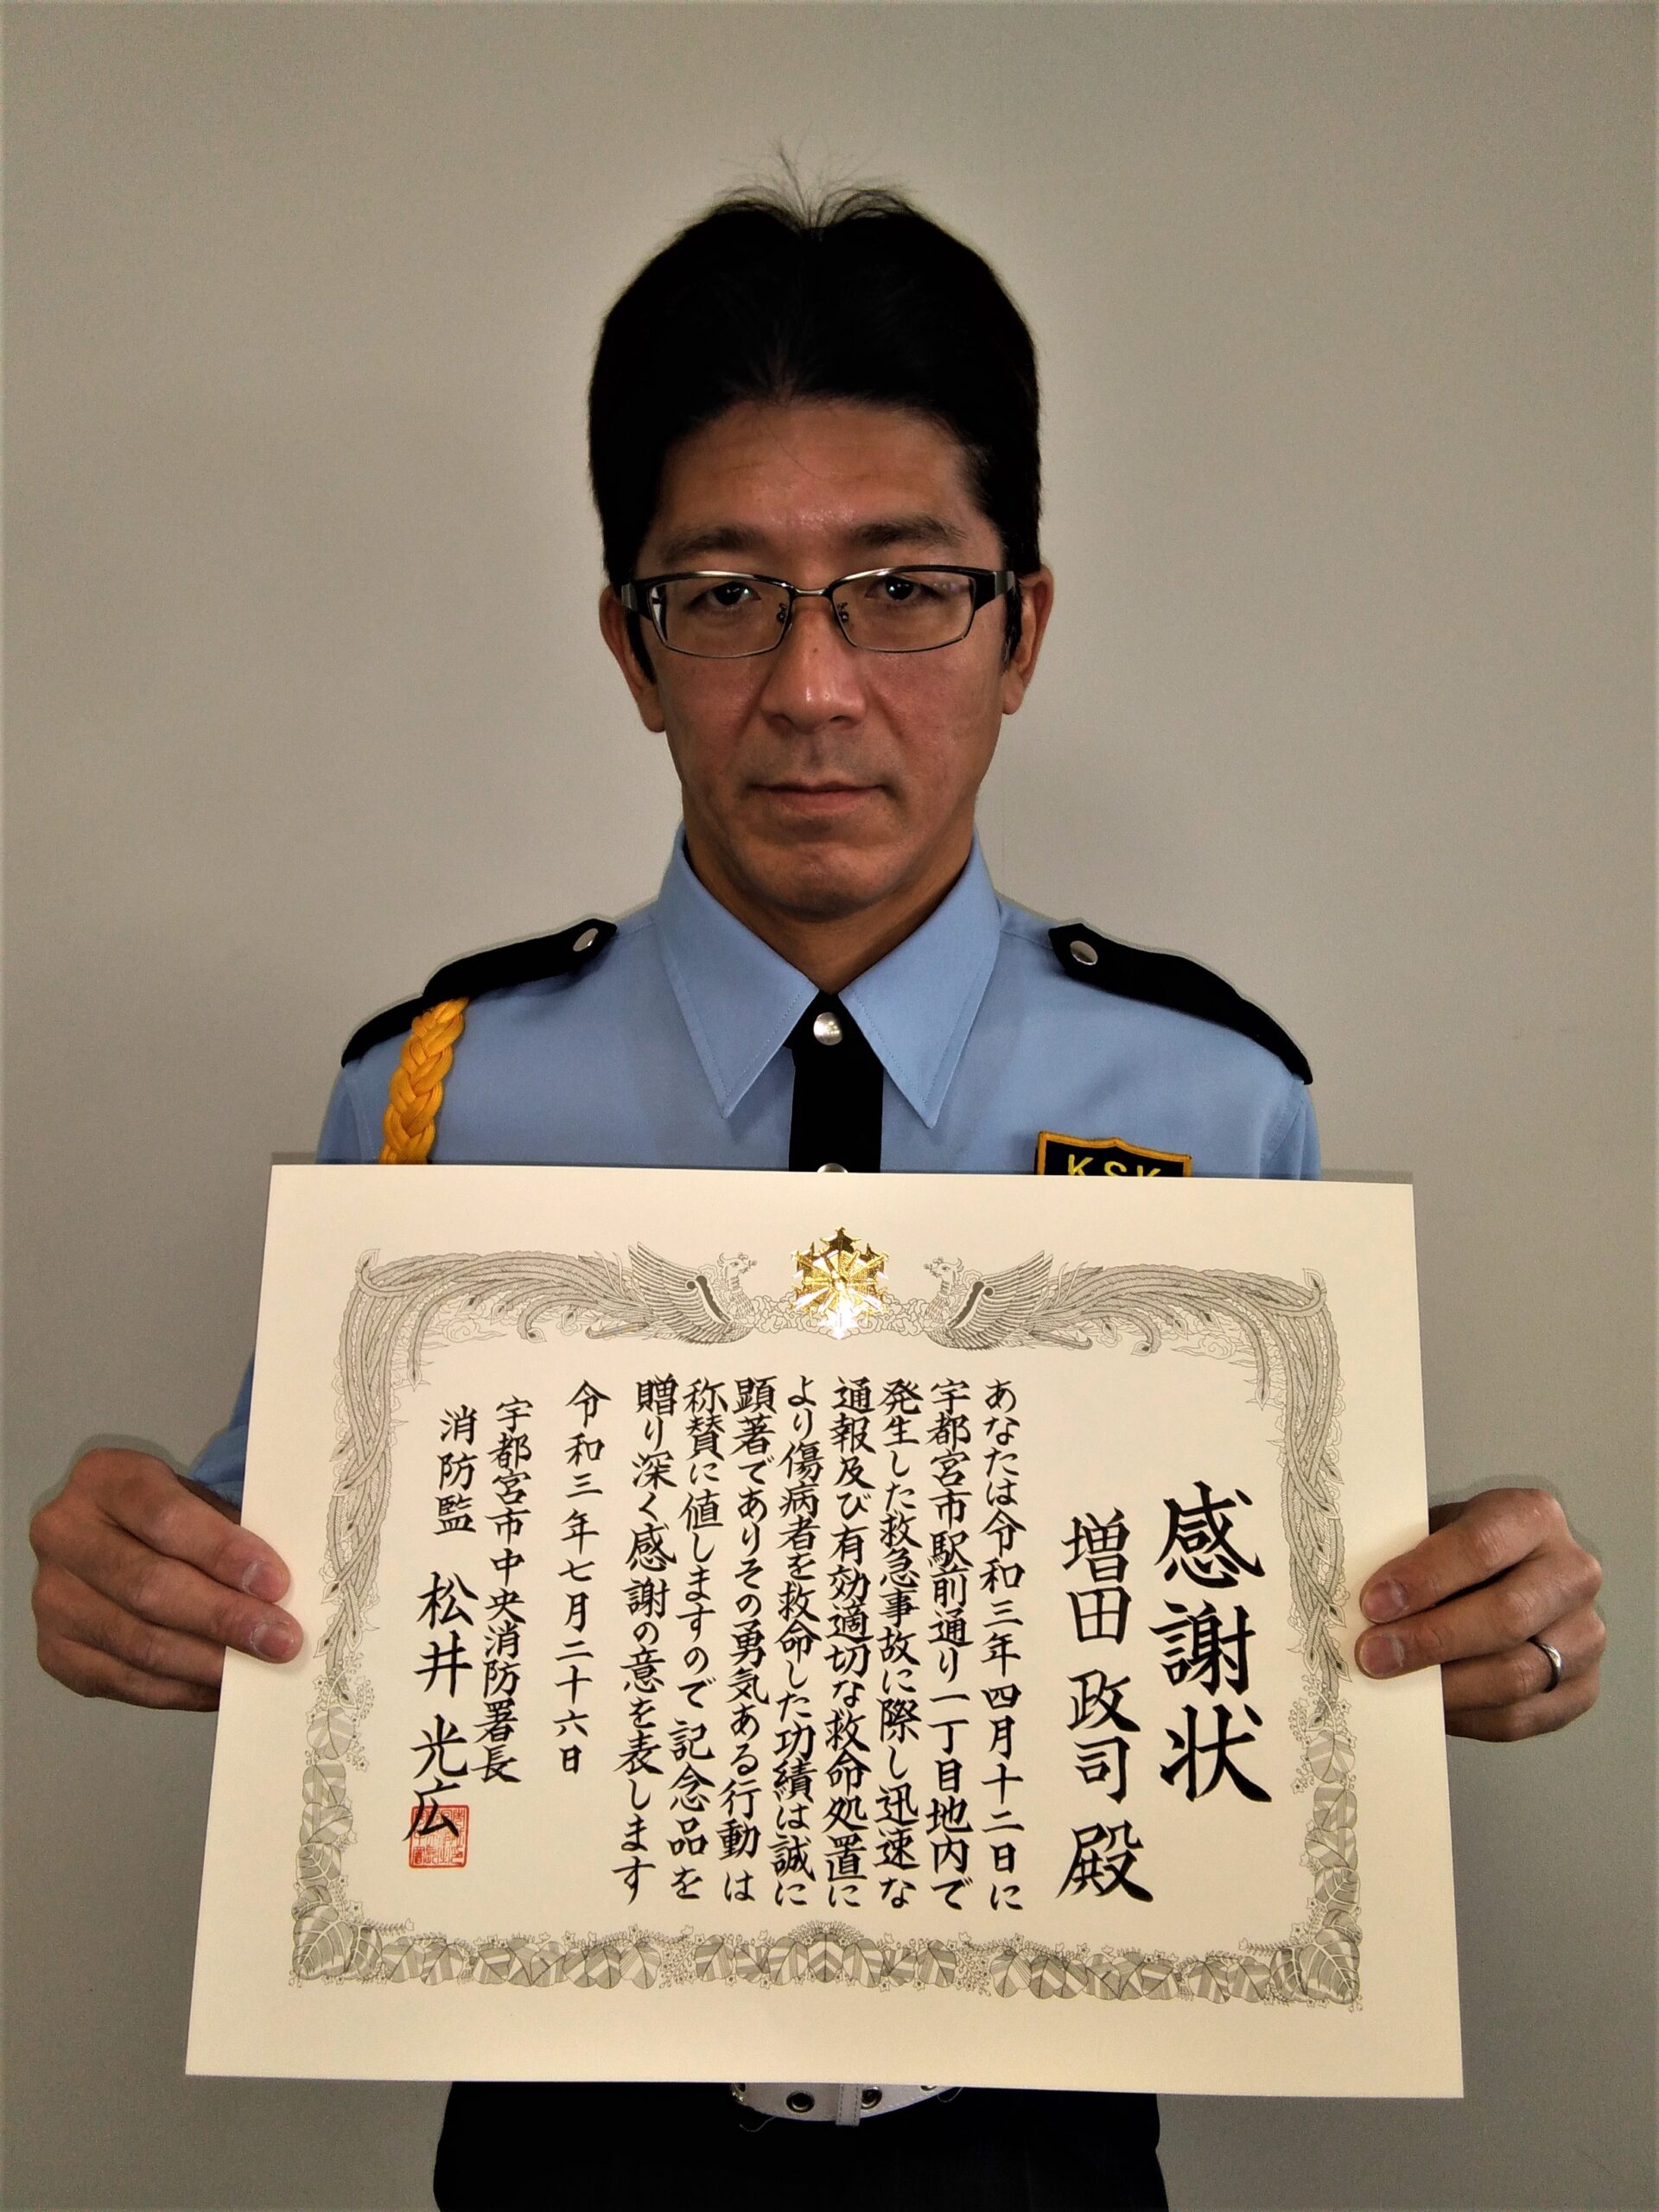 KSK
感謝状
増田 政司 殿
あなたは令和三年四月十二日に
宇都宮市駅前通り一丁目地内で
発生した救急事故に際し迅速な
通報及び有効適切な救命処置に
より傷病者を救命した功績は誠に
顕著でありその勇気ある行動は
称賛に値しますので記念品を
贈り深く感謝の意を表します
令和三年七月二十六日
宇都宮市中央消防署長
消防監 松井 光広